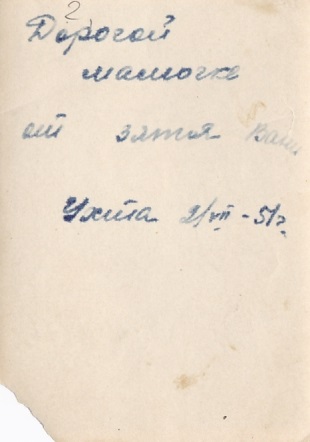 2
Дорогой
мамочке
от зятя Вани
Ухта 2/VII-51г.